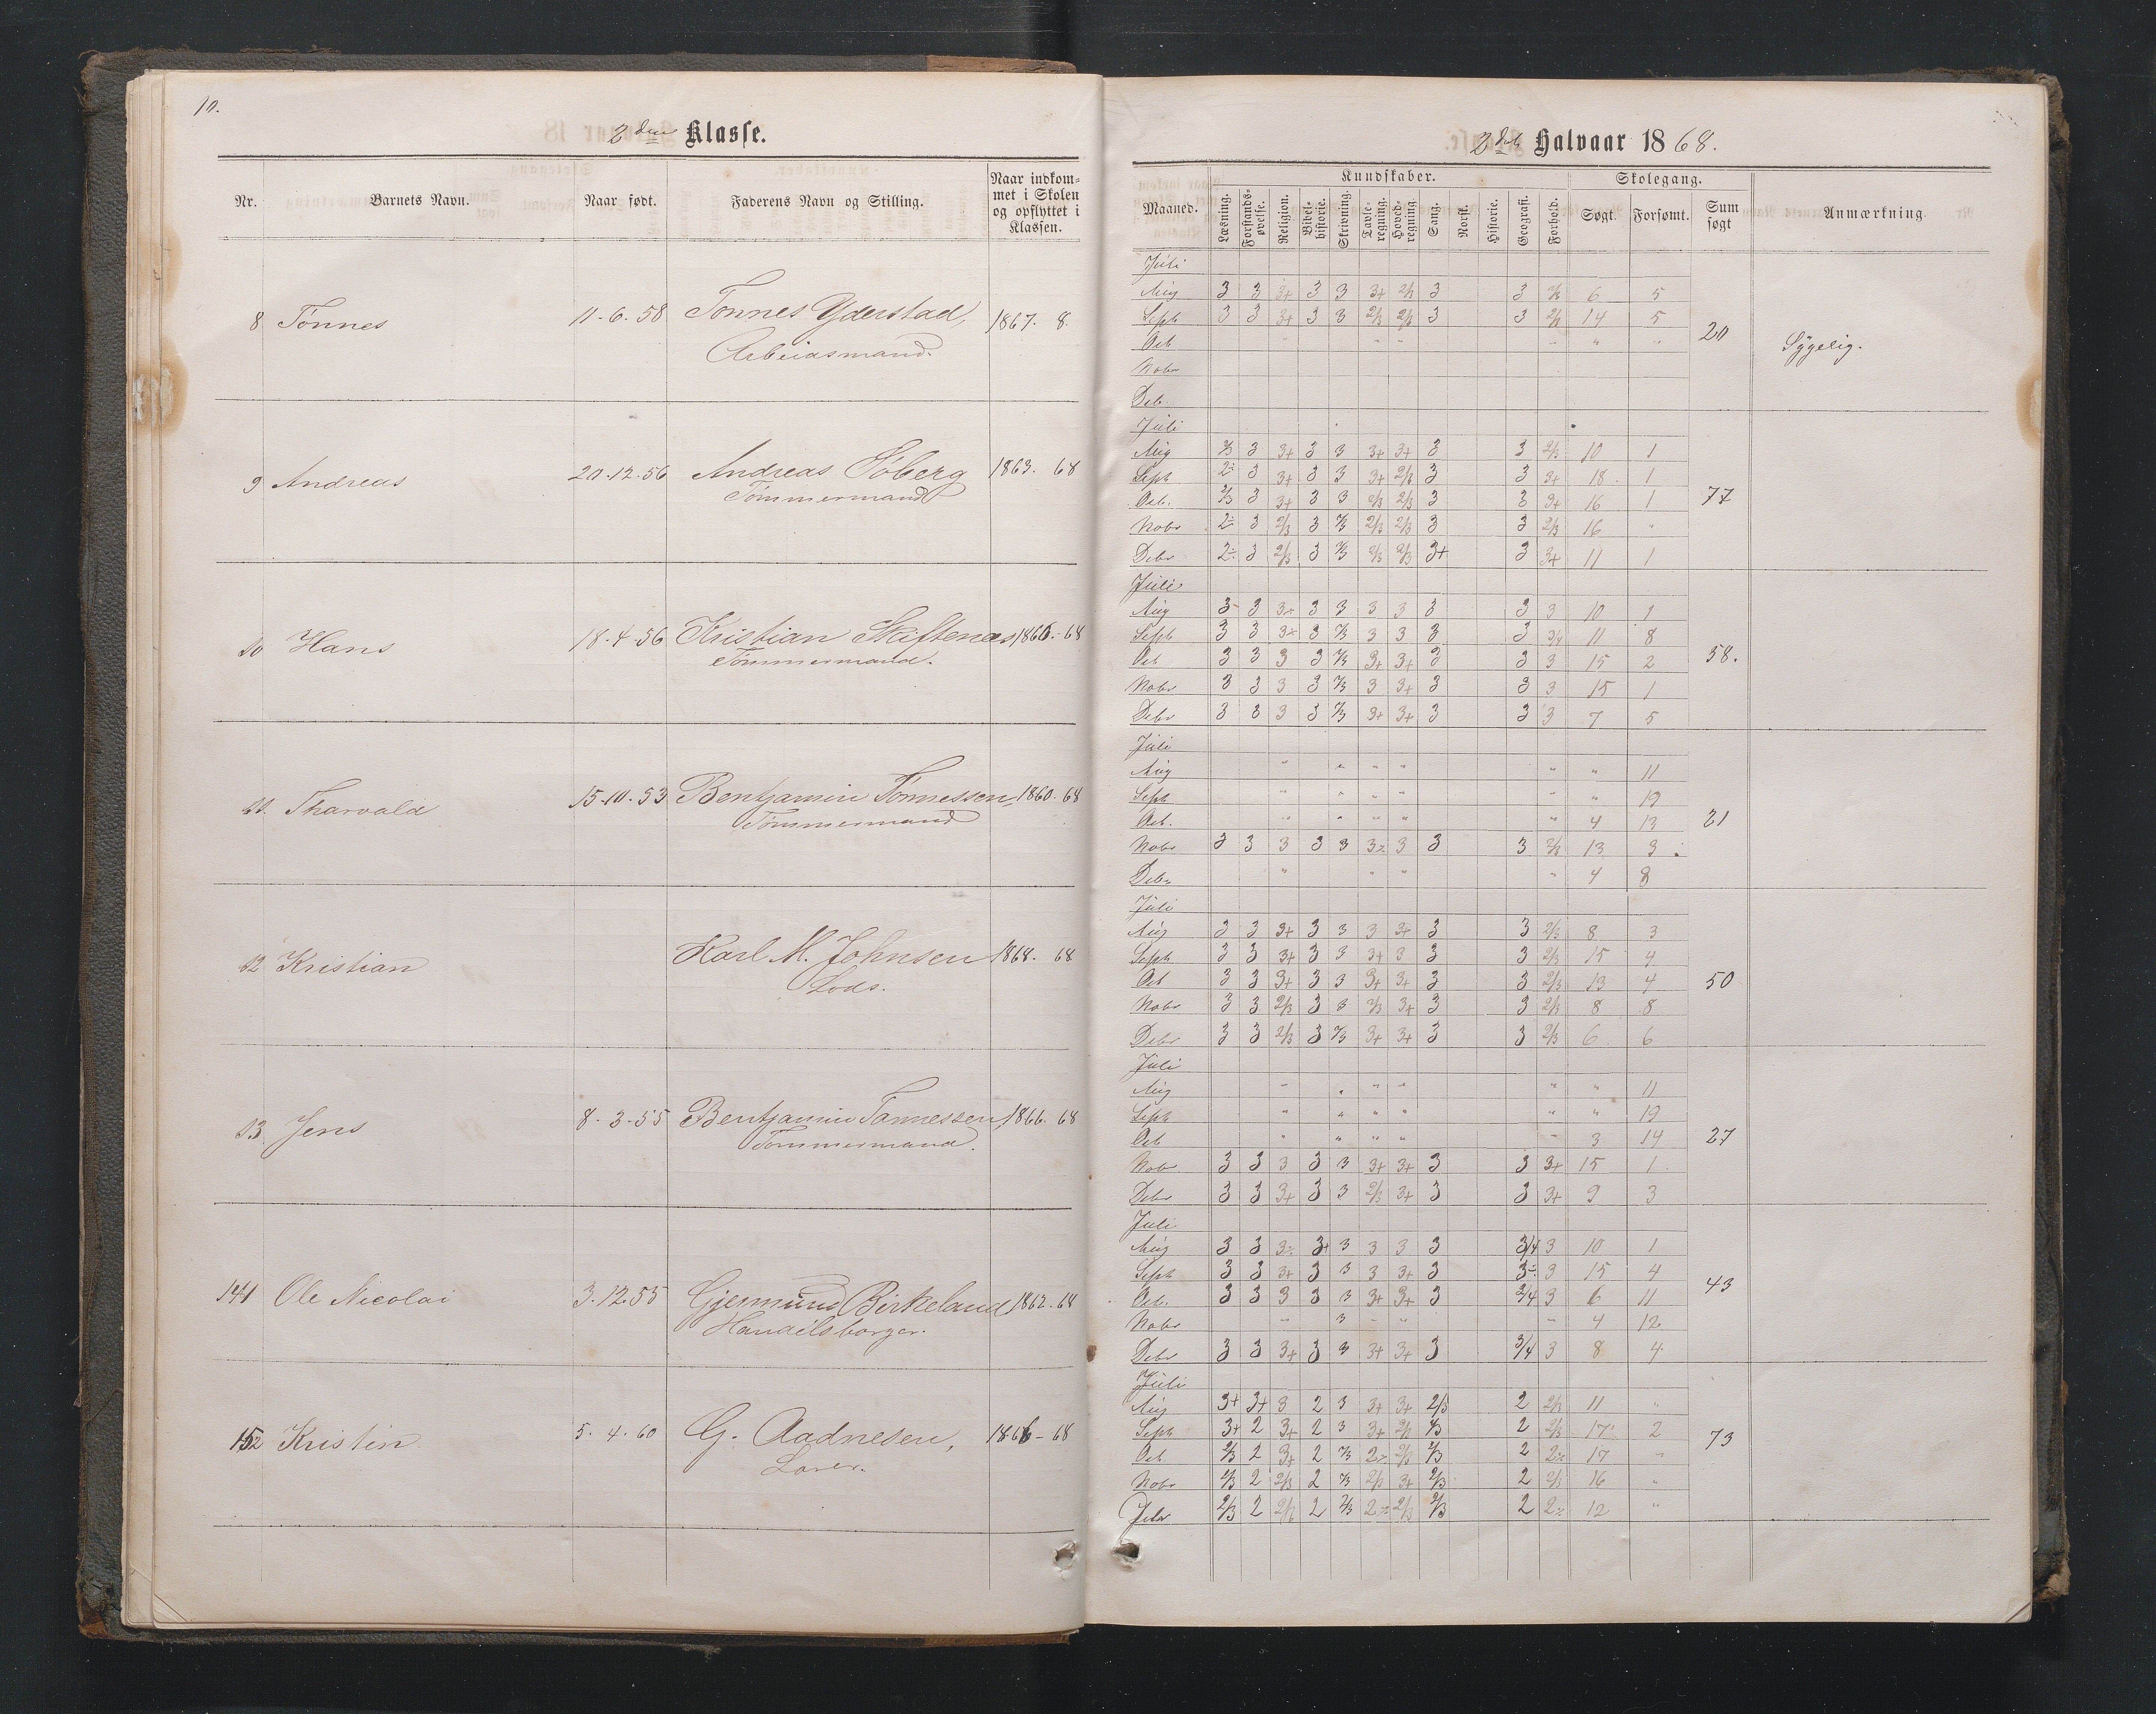 10.
2den Klasse.
Nr. Barnets Navn. Naar født. Faderens Navn og Stilling. Naar indkom-
met i Skolen
og opflyttet i
Klassen.
8 Tønnes 11-6-58 Tønnes Yderstad, 1867. 8.
Arbeidsmand.
9 Andreas 20-12-56 Andreas Söberg 1863. 68
Tømmermand
10 Hans 18-4-56 Kristian Skiftenæs 1866.-68
Tømmermand.
11. Tharvald 15-10-53 Bentjamin Tønnessen, 1860. 68
Tømmermand
12 Kristian Karl M. Johnsen 1868. 68
Lods.
13 Jens 8-3-55 Bentjamin Tønnessen, 1866. 68
Tømmermand.
14 Ole Nicolai 3.12.55 Gjermund Birkeland 1862.68
Handelsborger.
15 Kristin 5-4-60 G. Aadnesen, 1866-68
Lærer.
2det Halvaar 1868.
Kundskaber. Skolegang.
Maaned. Læsning. Forstands-øvelse. Religion. Bibel-historie. Skrivning. Tavle-regning. Hoved-regning. Sang. Norsk. Historie. Geografi. Forhold. Søgt. Forsømt. Sum søgt Anmærkning
Juli
Aug 3 3 3+ 3 3 3+ 2/3 3 3 2/3 6 5
Sept 3 3 3+ 3 3 2/3 2/3 3 3 2/3 14 5
20 Sygelig.
Oct " " " " " "
Nobr
Deb.
Juli
Aug 2/3 3 3+ 3 3 3+ 3+ 3 3 2/3 10 1
Sept 2÷ 3 3+ 3 3 3+ 2/3 3 3 3+ 18 1
Oct. 2/3 3 3+ 3 3 2/3 2/3 3 3 3+ 16 1
77
Nobr 2÷ 3 2/3 3 2/3 2/3 2/3 3 3 2/3 16 "
Debr 2÷ 3 2/3 3 2/3 2/3 2/3 3+ 3 3+ 11 1
Juli
Aug 3 3 3÷ 3 3 3 3 3 3 3 10 1
Sept 3 3 3÷ 3 2/3 3 3 3 3 3/4 11 8
Oct 3 3 3 3 2/3 3+ 3+ 3 3 3 15 2
58.
Nobr 3 3 3 3 2/3 3 3+ 3 3 3 15 1
Debr 3 3 3 3 2/3 3+ 3+ 3 3 3 7 5
Juli
Aug " " " " " " 11
Sept " " " " " " 19
Oct. " " " " " 4 13
21
Nobr 3 3 3 3 3 3÷ 3 3 3 2/3 13 3
Debr " " " " 4 8
Juli
Aug 3 3 3+ 3 3 3 3+ 3 3 2/3 8 3
Sept 3 3 3+ 3 3 3+ 3 3 3 2/3 15 4
Oct 3 3 3+ 3 3 3+ 3+ 3 3 2/3 13 4
50
Nobr 3 3 2/3 3 3 2/3 3+ 3 3 2/3 8 8
Debr 3 3 2/3 3 2/3 3+ 3+ 3 3 2/3 6 6
Juli
Aug " " " " " " 11
Sept " " " " " " 19
Oct " " " " " 3 14
27
Nobr 3 3 3 3 3 3+ 3+ 3 3 3+ 15 1
Debr 3 3 3+ 3 3 2/3 3+ 3 3 3+ 9 3
Juli
Aug 3 3 3÷ 3+ 3 3 3 3 3/4 3 10 1
Sept 3 3 3+ 3 3 3 3+ 3 3÷ 3 15 4
43
Oct. 3 3 3 3 3 3+ 3+ 3 3/4 3 6 11
Nobr " 3 " " " 4 12
Debr 3 3 3+ 3 3 3+ 3+ 3 3/4 3 8 4
Juli
Aug 3+ 3+ 3 2 3 3+ 3+ 2/3 2 2/3 11 "
Sept 3+ 2 3+ 2 3 3+ 2/3 2/3 2 2/3 17 2
73
Oct 2/3 2 3+ 2 2/3 2÷ 2/3 2/3 2 2÷ 17 "
Nobr 2/3 2 2/3 2 2/3 2/3 3+ 2/3 2 2/3 16 "
Debr 2/3 2 2/3 2 2/3 2÷ 2/3 2/3 2 2÷ 12 "